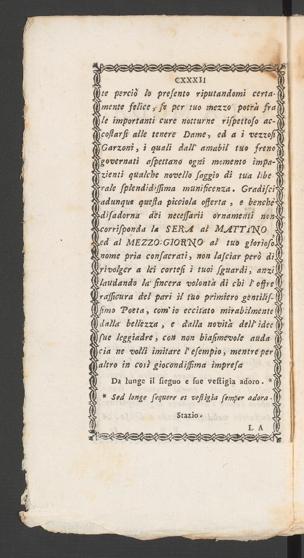 CXXXII
te perciò lo presento riputandomi certa-
mente felice, se per tuo mezzo potrà fra
le importanti cure notturne rispettoso ac-
costarsi alle tenere Dame, ed a i vezzosi
Garzoni, i quali dall' amabil tuo freno
governati aspettano ogni momento impa-
zienti qualche novello saggio di tua libe-
rale splendidissima munificenza. Gradisci
adunque questa picciola offerta, e benchè
disadorna dei necessarii ornamenti non
corrisponda la SERA al MATTINO
ed al MEZZO-GIORNO al tuo glorioso
nome pria consacrati, non lasciar però di
rivolger a lei cortesi i tuoi sguardi, anzi
laudando la sincera volontà di chi l'offre
rassicura del pari il tuo primiero gentilis-
simo Poeta, com'io eccitato mirabilmente
dalla bellezza, e dalla novità dell'idee
sue leggiadre, con non biasimevole auda-
cia ne volli imitare l'esempio, mentre per
altro in così giocondissima impresa
Da lunge il sieguo e sue vestigia adoro. *
* Sed longe sequere et vestigia semper adora.
Stazio.
L A